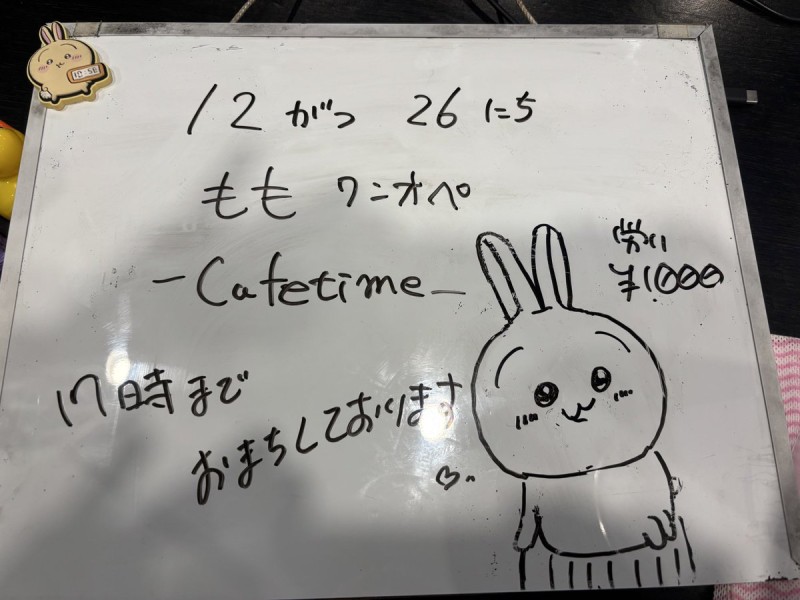 12がつ 26にち
もも ワンオペ
-Cafetime-
労い
¥1000
17時まで
おまちしております